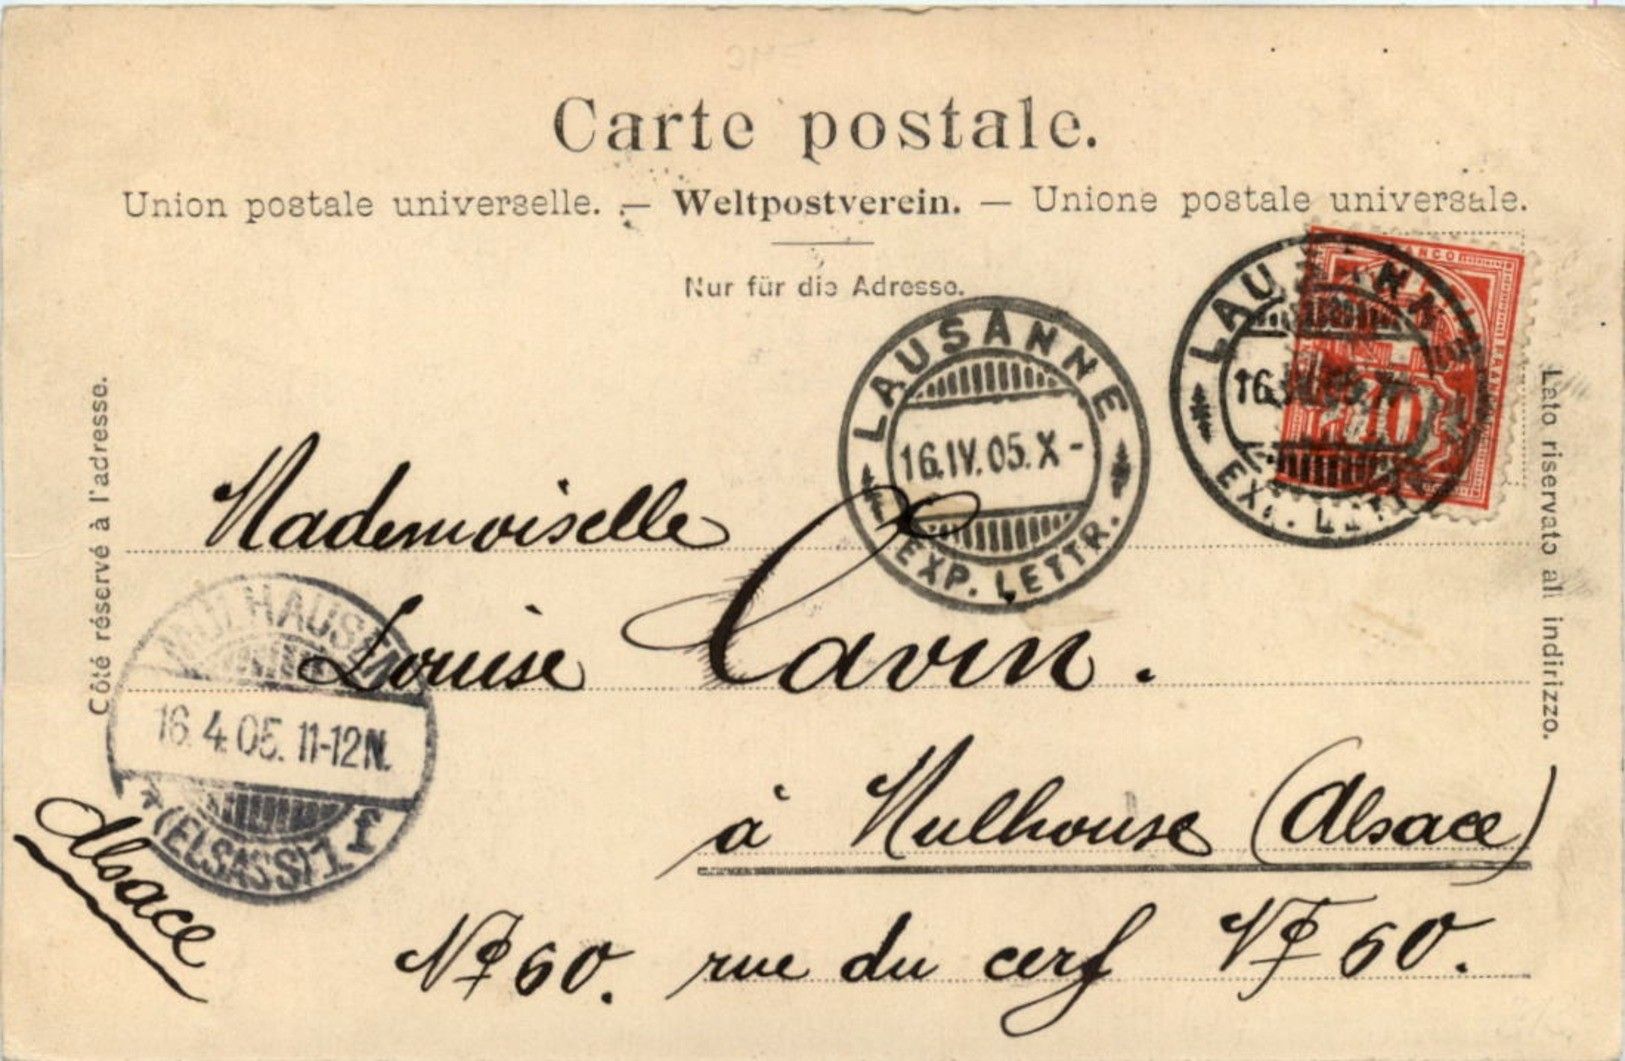 Carte postale.
Union postale universelle. — Weltpostverein. — Unione postale universale.
Nur für die Adresse.
Côté réservé à l'adresse.
Lato riservato all indirizzo.
LAUSANNE
16.IV.05.X-
EXP. LETTR.
LAUSANNE
16.IV.05.X
EXP. LETTR.
FRANCO
10
Mademoiselle
Louise Cavin.
à Mulhouse (Alsace)
No 60. rue du cerf No 60.
Alsace
MÜLHAUSEN
16.4.05. 11-12N.
*(ELSASS)1 f